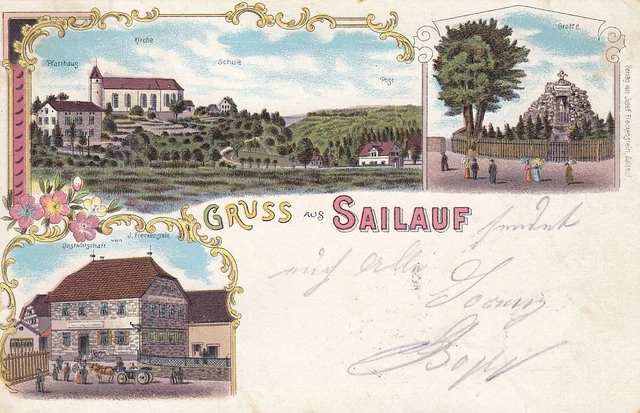 Kirche
Pfarrhaus
Schule
Post
Grotte
Verlag von Josef Fleckenstein, Sailauf.
GRUSS AUS SAILAUF
sendet
euch Alle
Gastwirtschaft von J. Fleckenstein